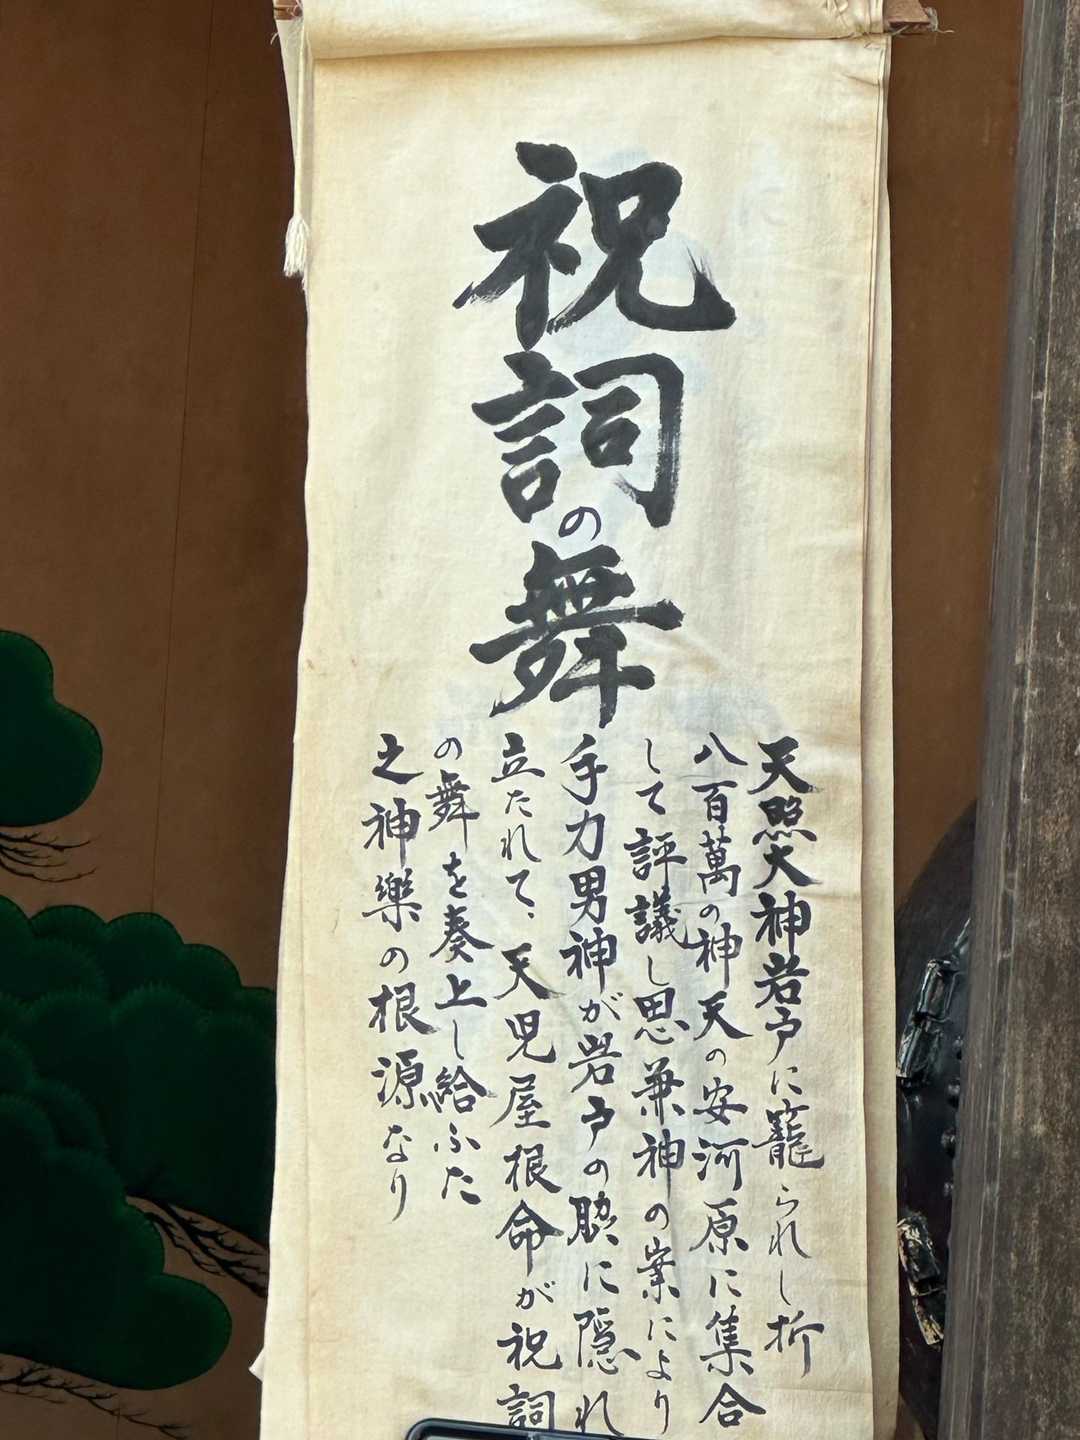 祝詞の舞
天照大神岩戸に籠られし折
八百萬の神天の安河原に集合
して評議し思兼神の案により
手力男神が岩戸の脇に隠れ
立たれて、天児屋根命が祝詞
の舞を奏上し給ふた
之神樂の根源なり